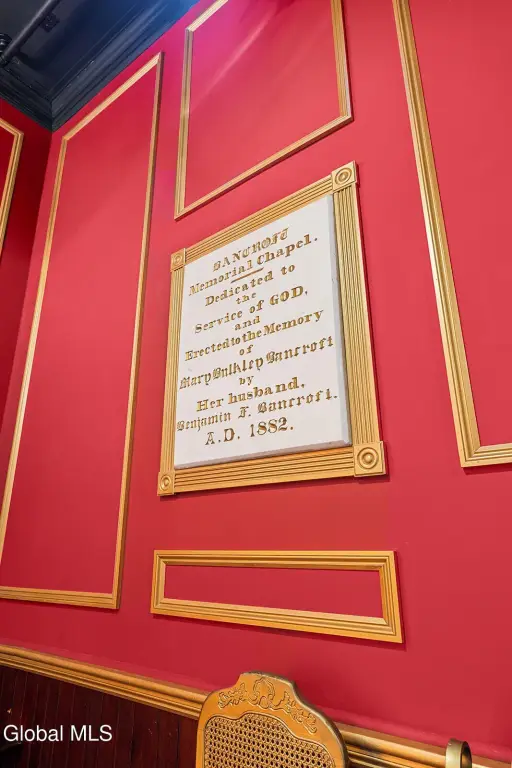 BANCROFT
Memorial Chapel.
Dedicated to
the
Service of GOD,
and
Erected to the Memory
of
Mary Bulkley Bancroft
by
Her husband,
Benjamin F. Bancroft.
A.D. 1882.
Global MLS